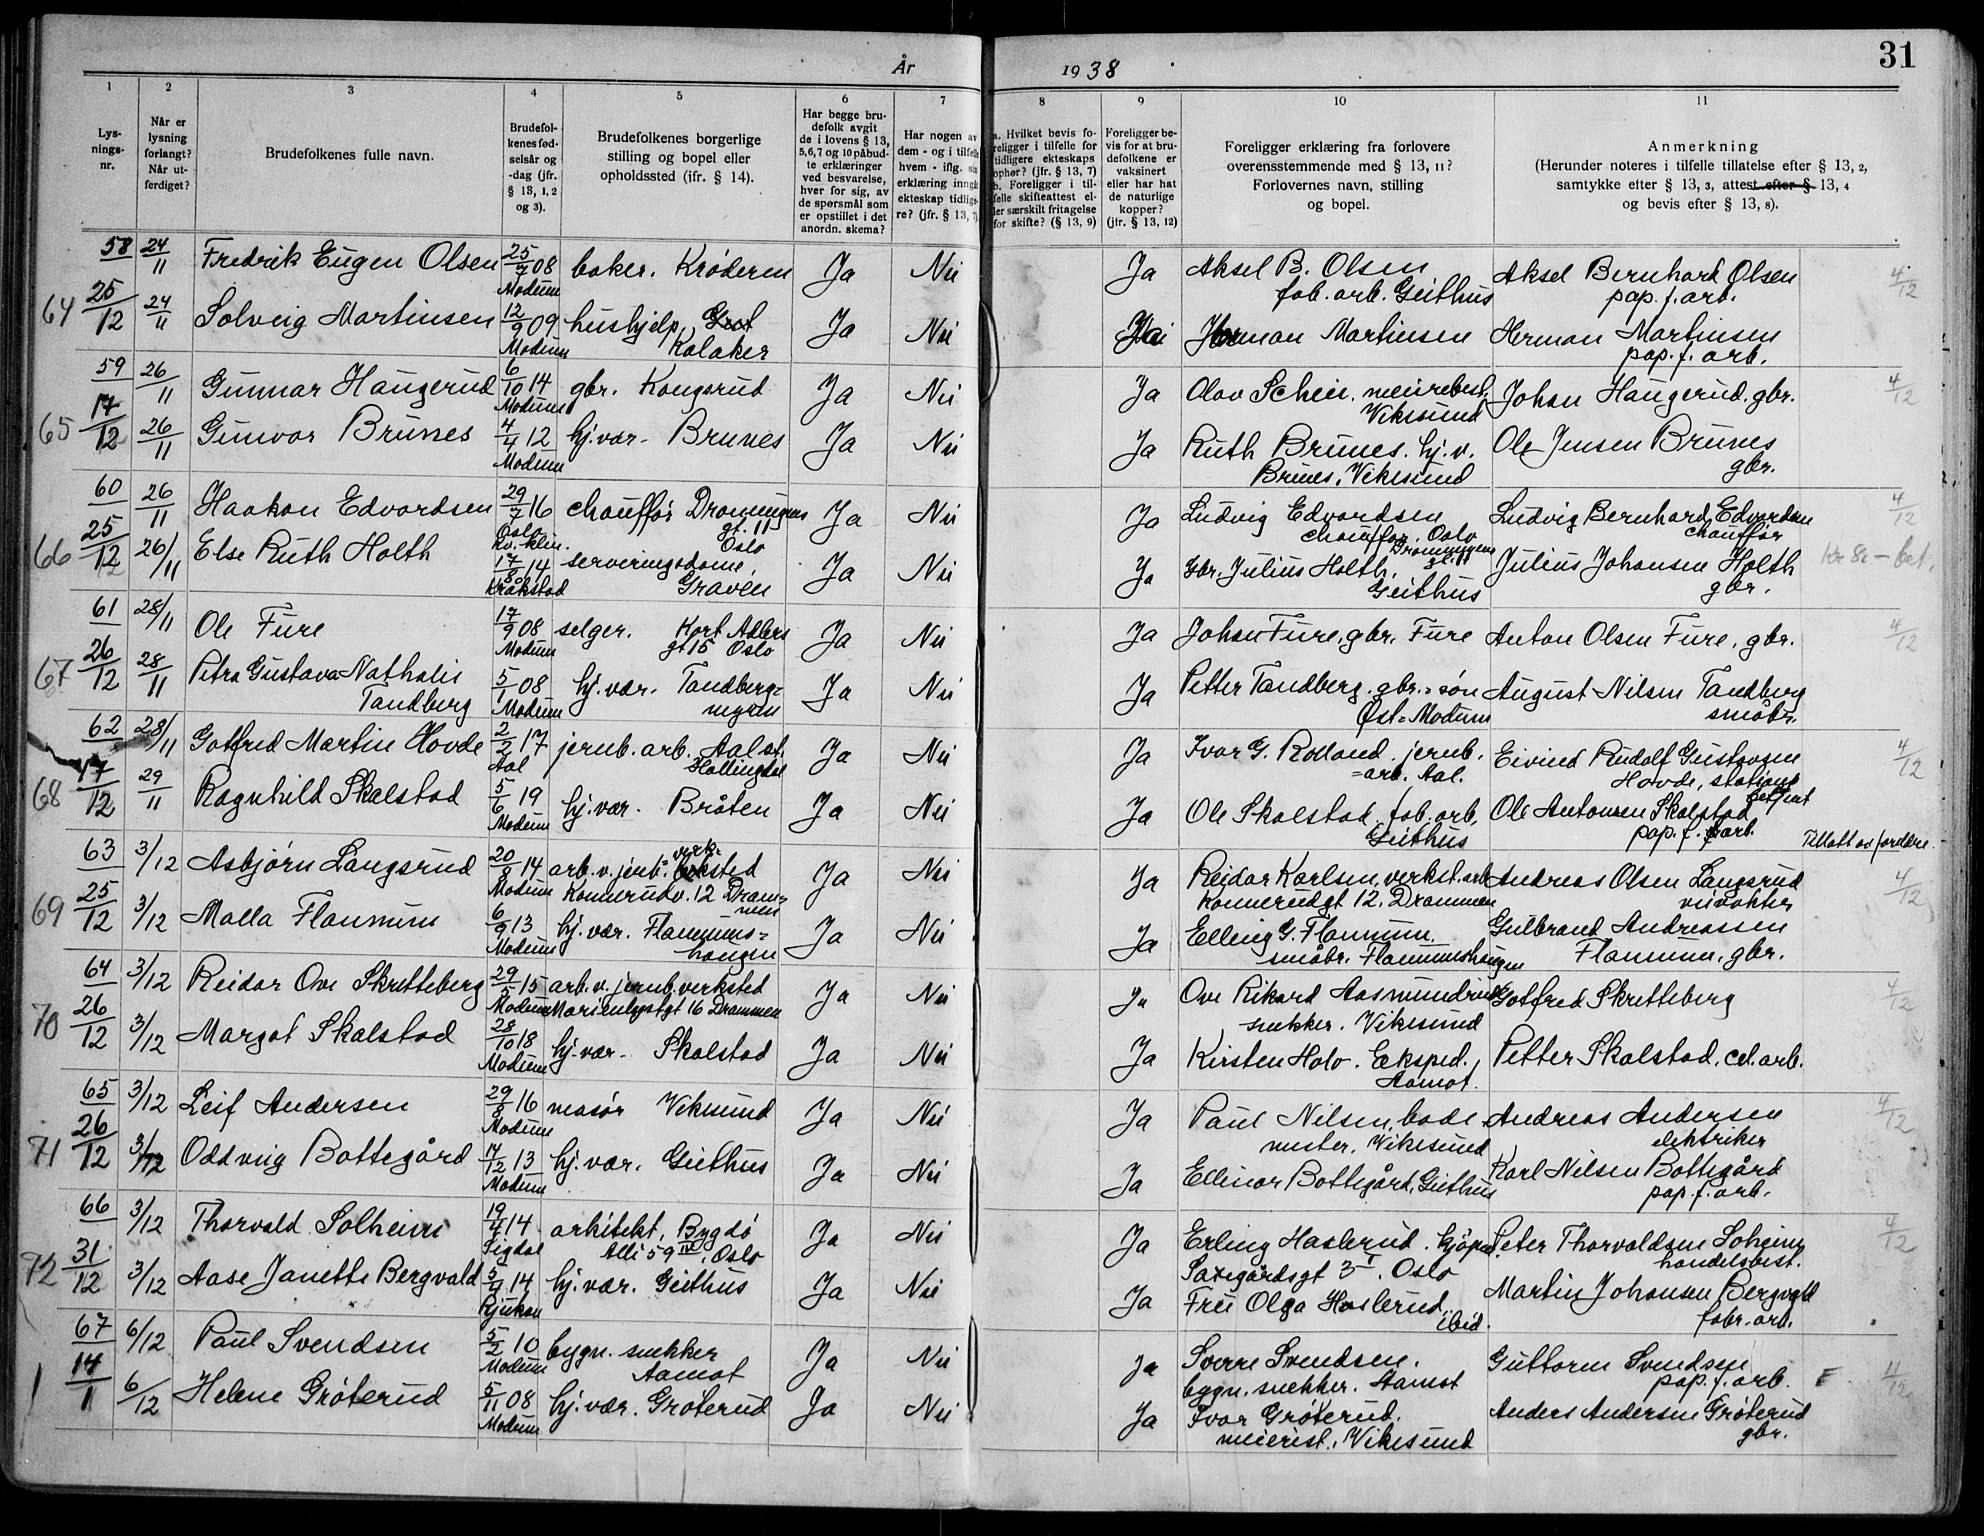 31
År 1938
1 2 3 4 5 6 7 8 9 10 11
Lys-
nings-
nr.
Når er
lysning
forlangt?
Når ut-
ferdiget?
Brudefolkenes fulle navn.
Brudefol-
kenes fød-
selsår og
-dag (jfr.
§ 13, 1, 2
og 3).
Brudefolkenes borgerlige
stilling og bopel eller
opholdssted (ifr. § 14).
Har begge bru-
defolk avgit
de i lovens § 13,
5,6,7 og 10 påbud-
te erklæringer
ved besvarelse,
hver for sig, av
de spørsmål som
er opstillet i det
anordn. skema?
Har nogen av
dem - og i tilfelle
hvem - iflg. sin
erklæring inngå
ekteskap tidlig-
re? (jfr. § 13, 7)
a. Hvilket bevis fo-
religger i tilfelle for
tidligere ekteskaps
ophør? (jfr. § 13, 7)
b. Foreligger i til-
felle skifteattest el-
ler særskilt fritagelse
for skifte? (§ 13, 9)
Foreligger be-
vis for at bru-
defolkene er
vaksinert
eller har hat
de naturlige
kopper?
(jfr. § 13, 12)
Foreligger erklæring fra forlovere
overensstemmende med § 13, 11?
Forlovernes navn, stilling
og bopel.
Anmerkning
(Herunder noteres i tilfelle tillatelse efter § 13, 2,
samtykke efter § 13, 3, attest efter § 13, 4
og bevis efter § 13, 8).
58 24/11 Fredrik Eugen Olsen 25/7 08 Modum baker. Krøderen Ja Nei Ja Aksel B. Olsen fab. arb. Geithus Aksel Bernhard Olsen pap. f. arb. 4/12
64 25/12 24/11 Solveig Martinsen 12/9 09 Modum hushjelp, Kalaker Ja Nei Herman Martinsen Herman Martinsen pap. f. arb.
59 26/11 Gunnar Haugerud 6/10 14 Modum gbr. Kongsrud Ja Nei Ja Olav Scheie. meieribest. Vikesund Johan Haugerud. gbr. 4/12
65 17/12 26/11 Gunvor Brunes 4/4 12 Modum hj. vær. Brunes Ja Nei Ja Ruth Brunes. hj. v. Brunes, Vikesund Ole Jensen Brunes gbr.
60 26/11 Haakon Edvardsen 29/7 16 Oslo kv.-klin. chauffør Dronningens gt. 11 Oslo Ja Nei Ja Ludvig Edvardsen chauffør, Oslo Dronningens gt. 11 Ludvig Bernhard Edvardsen chauffør 4/12
66 25/12 26/11 Else Ruth Holth 17/8 14 Kråkstad serveringsdame, Graven Ja Nei Ja gbr. Julius Holth, Geithus Julius Johansen Holth gbr. Kr 8. - bet.
61 28/11 Ole Fure 17/9 08 Modum selger. Kort Adlers gt 15 Oslo Ja Nei Ja Johan Fure, gbr. Fure Anton Olsen Fure, gbr. 4/12
67 26/12 28/11 Petra Gustava Nathalie Tandberg 5/1 08 Modum hj. vær. Tandberg= Ja Nei Ja Petter Tandberg. gbr.=søn Øst=Modum August Nilsen Tandberg småbr.
62 28/11 Gotfred Martin Hovde 2/2 17 Aal jernb. arb. Aal st. Hallingdal Ja Nei Ja Ivar G. Rolland. jernb. =arb. Aal. Eivind Rudolf Gustavsen Hovde, stations betjent 4/12
68 17/12 29/11 Ragnhild Skalstad 5/6 19 Modum hj. vær. Bråten Ja Nei Ja Ole Skalstad, fab. arb. Geithus Ole Antonsen Skalstad pap. f. arb. Tillatt av foreldre.
63 3/12 Asbjørn Langsrud 20/8 14 Modum arb. v. jernb.= verksted Konnerudv. 12 Drammen Ja Nei Ja Reidar Karlsen, verkst. arb Konnerudgt 12. Drammen Andreas Olsen Langsrud veivokter 4/12
69 25/12 3/12 Malla Flannum 6/9 13 Modum hj. vær. Flannums= haugen Ja Nei Ja Elling G. Flannum. småbr. Flannumshaugen Gulbrand Andreassen Flannum, gbr.
64 3/12 Reidar Ove Skretteberg 29/5 15 Modum arb. v. jernb. verksted Marienlystgt 16 Drammen Ja Nei Ja Ove Rikard Aasmundrud snekker. Vikesund Gotfred Skretteberg 4/12
70 26/12 3/12 Margot Skalstad 28/10 18 Modum hj. vær. Skalstad Ja Nei Ja Kirsten Holo. Eksped. Aamot. Petter Skalstad, cel. arb.
65 3/12 Leif Andersen 29/8 16 Modum masør Vikesund Ja Nei Ja Paul Nilsen, bade mester. Vikesund Andreas Andersen elektriker 4/12
71 26/12 3/12 Oddveig Bottegård 14/12 13 Modum hj. vær. Geithus Ja Nei Ja Ellinor Bottegård, Geithus Karl Nilsen Bottegård pap. f. arb.
66 3/12 Thorvald Solheim 19/4 14 Sigdal arkitekt, Bygdø Allé 59 IV, Oslo Ja Nei Ja Erling Haslerud. kjøpm. gt 3 I. Oslo Peter Thorvaldsen Solheim handelsbest. 4/12
72 31/12 3/12 Aase Janette Bergvald 14 Rjukan hj. vær. Geithus Ja Nei Ja Fru Olga Haslerud, ibid. Martin Johansen Bergvald fabr. arb.
67 6/12 Paul Svendsen 5/2 10 Modum bygn. snekker Aamot Ja Nei Ja Sverre Svendsen. bygn. snekker. Aamot Guttorm Svendsen pap. f. arb. 4/12
1 14/1 6/12 Helene Grøterud 5/11 08 Modum hj. vær. Grøterud Ja Nei Ja Ivar Grøterud. meierist, Vikesund Anders Andersen Grøterud gbr.